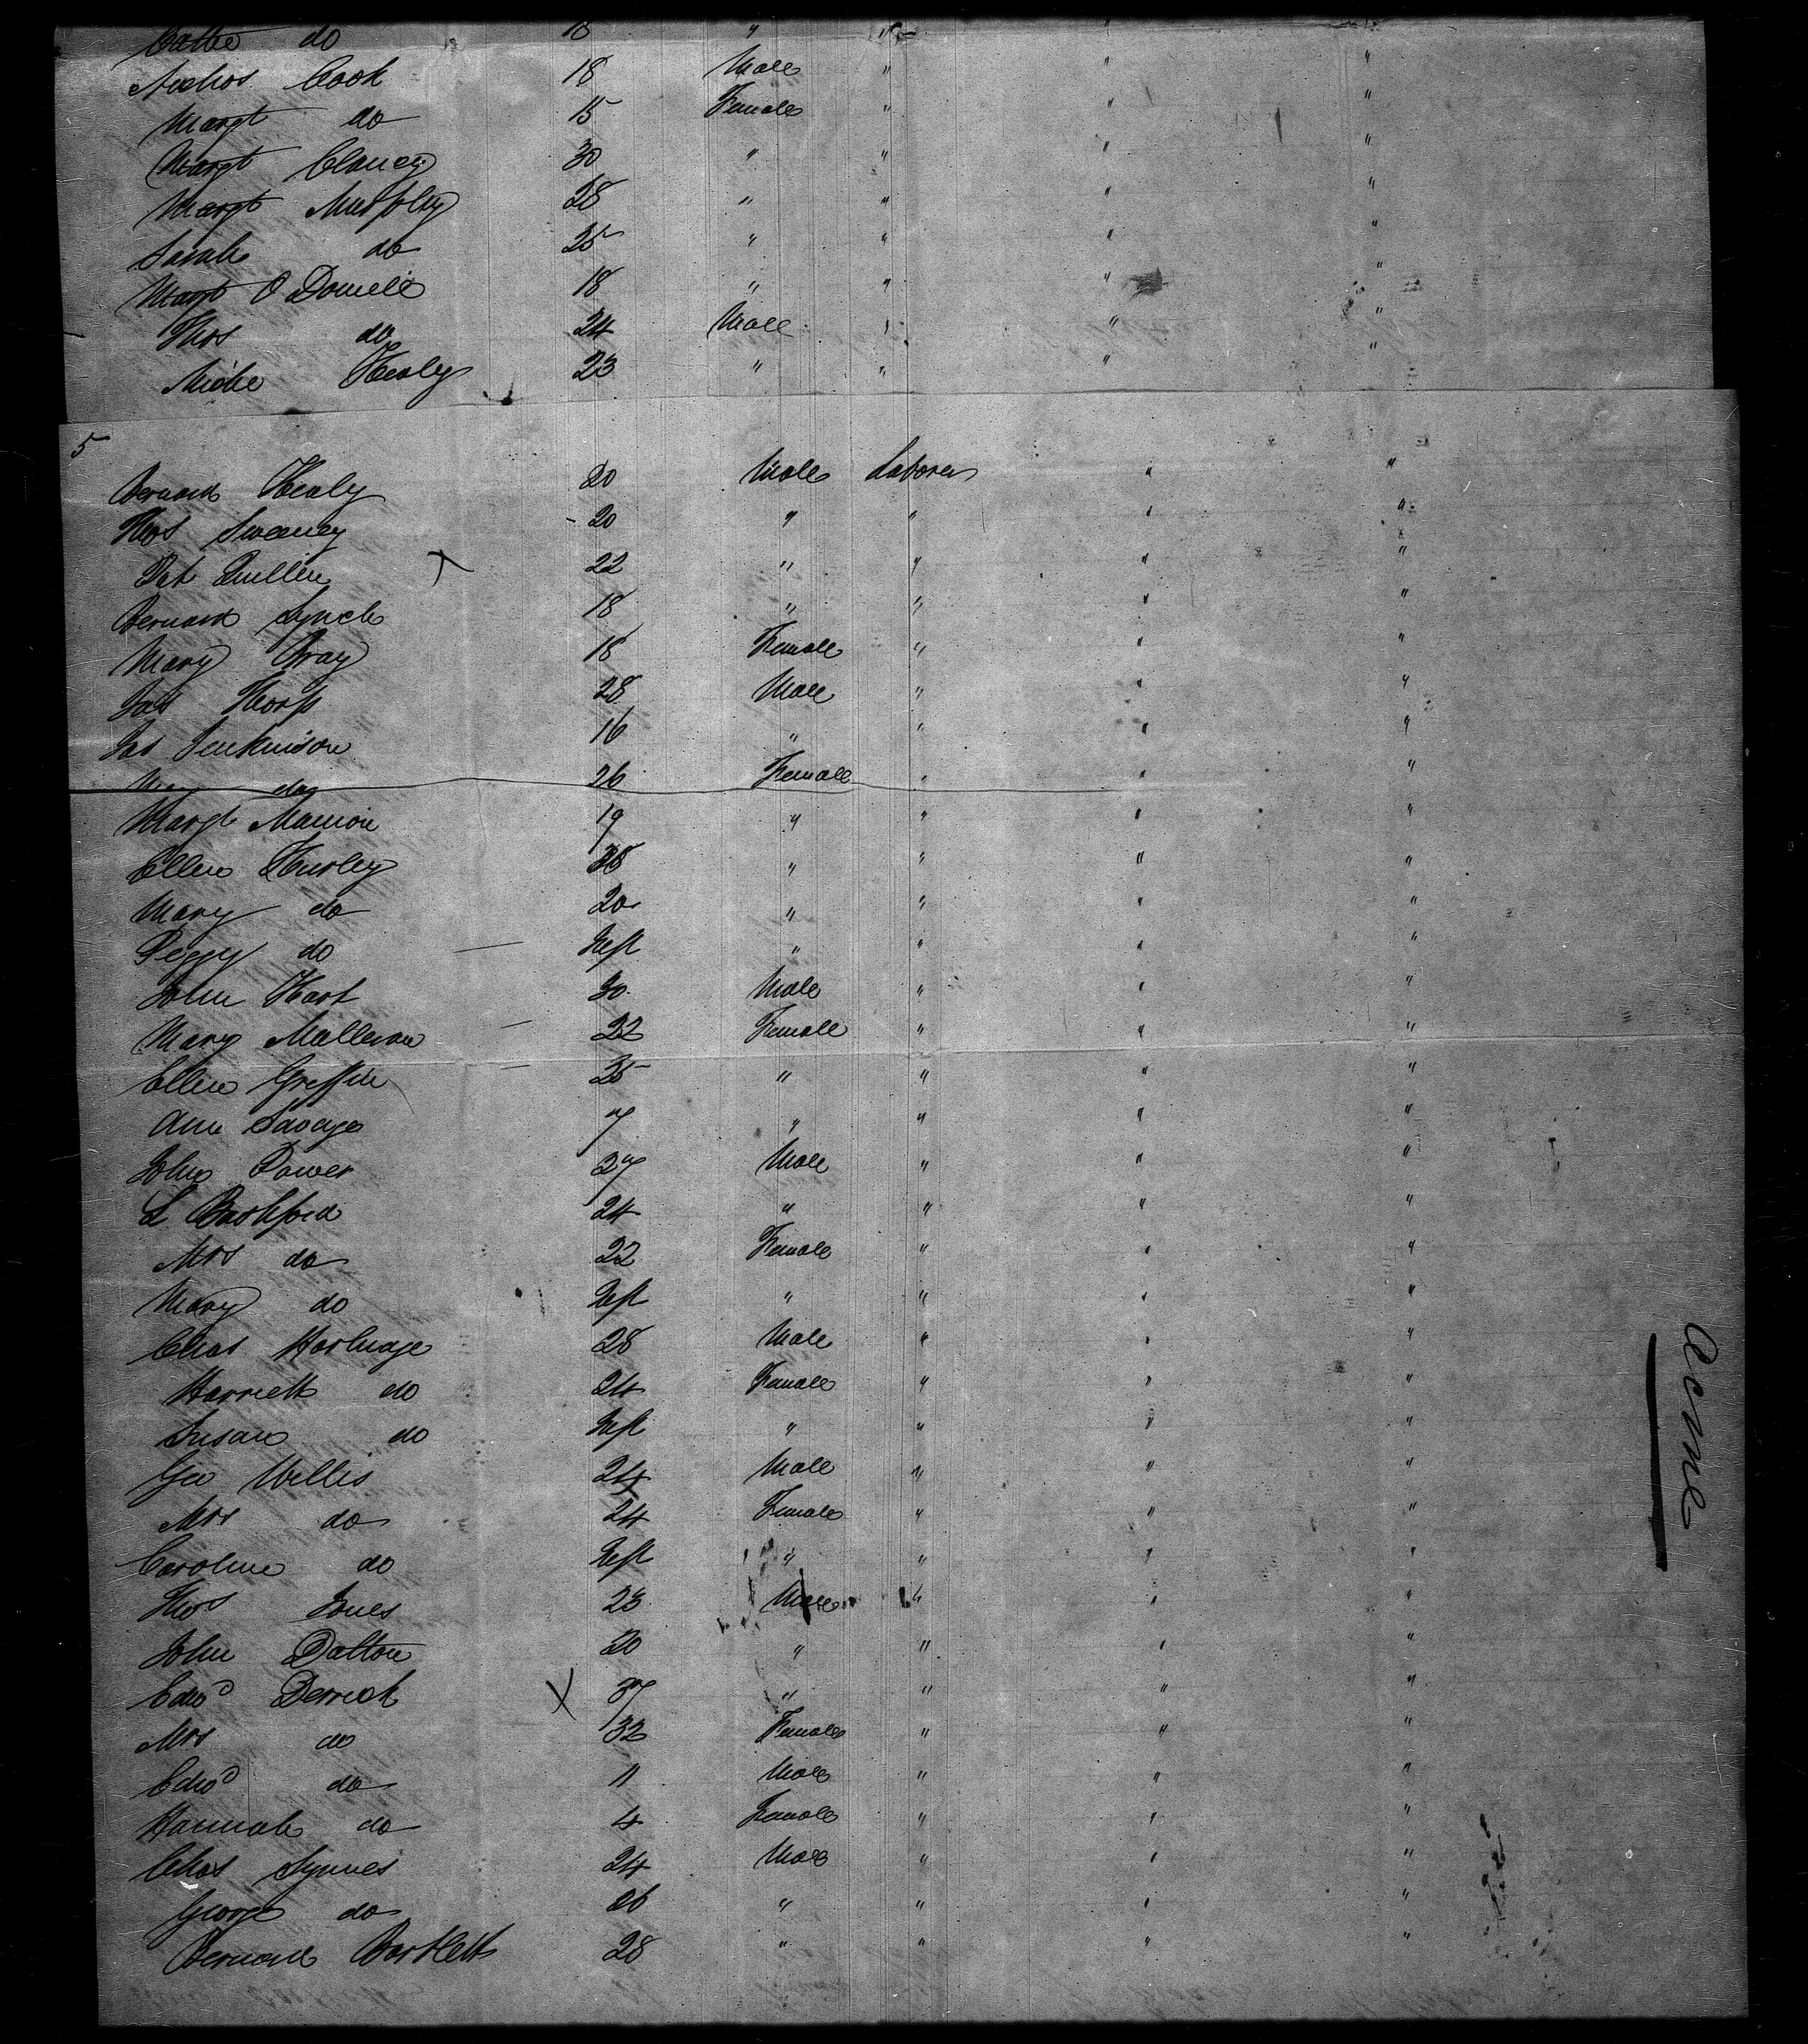 Cathe do 18 " " " "
Nichos Cook 18 Male " " "
Margt do 15 Female " " "
Margt Clancy 30 " " " "
Margt Murphy 28 " " " "
Sarah do 25 " " " "
Margt O Donnell 18 " " " "
Thos do 24 Male " " "
Miche Healy 23 " " " "
5
Bernard Healy 20 Male Laborer " "
Thos Sweeney 20 " " " "
Pat Quillen X 22 " " " "
Bernard Lynch 18 " " " "
Mary Gray 18 Female " " "
Jas Thorp 28 Male " " "
Jas Jenkinson 16 " " " "
do 26 Female " " "
Margt Mannion 19 " " " "
Ellen Hurley 38 " " " "
Mary do 20 " " " "
Peggy do Inft " " " "
John Hart 30 Male " " "
Mary Malleson 22 Female " " "
Ellen Griffin 35 " " " "
Ann Savage 7 " " " "
John Power 37 Male " " "
L Bashford 24 " " " "
Mrs do 22 Female " " "
Mary do Inft " " " "
Chas Horlnage 28 Male " " "
Harriett do 24 Female " " "
Susan do Inft " " " "
Geo Willis 24 Male " " "
Mrs do 24 Female " " "
Caroline do Inft " " " "
Thos Jones 23 Male " " "
John Dalton 20 " " " "
Edwd Derrick X 37 " " " "
Mrs do 32 Female " " "
Edwd do 11 Male " " "
Hannah do 4 Female " " "
Chas Symes 24 Male " " "
George do 26 " " " "
Bernard Bartlett 28 " " " "
Acme